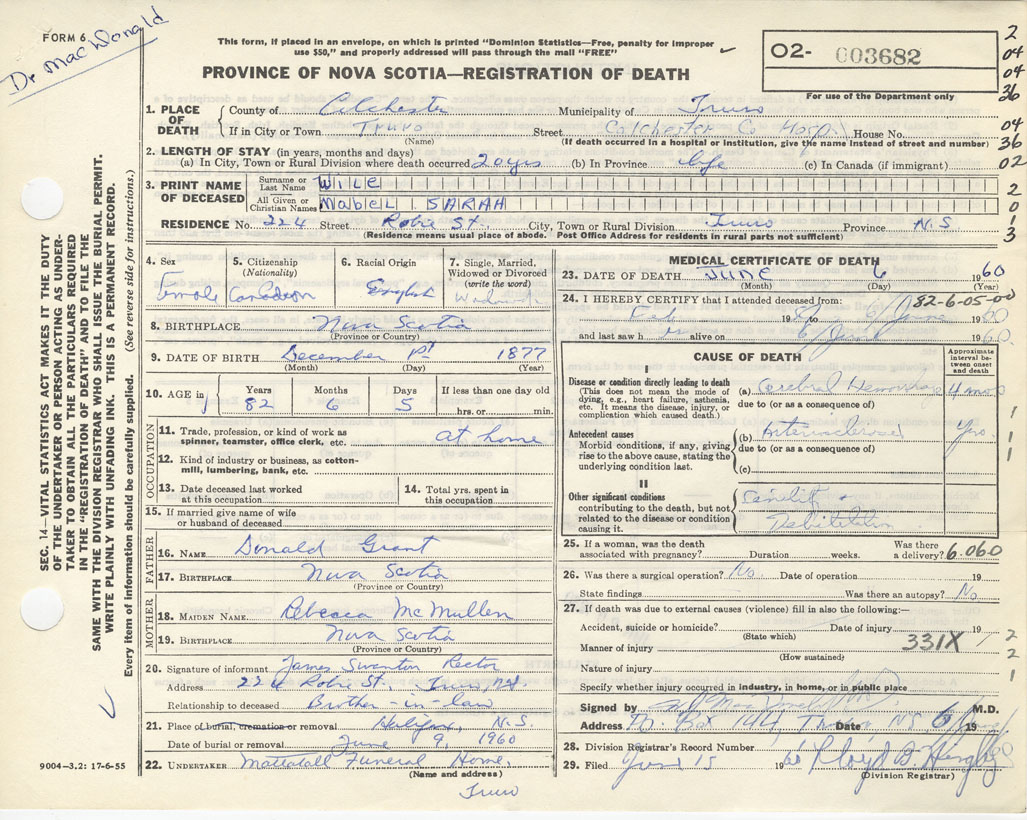 FORM 6.
Dr MacDonald
This form, if placed in an envelope, on which is printed "Dominion Statistics—Free, penalty for improper
use $50," and properly addressed will pass through the mail "FREE"
O2- 003682
For use of the Department only
PROVINCE OF NOVA SCOTIA—REGISTRATION OF DEATH
2
04
04
36
04
36
02
2
0
1
3
1. PLACE OF DEATH County of Colchester Municipality of Truro
If in City or Town Truro Street Colchester Co Hosp House No.
(Name) (If death occurred in a hospital or institution, give the name instead of street and number)
2. LENGTH OF STAY (in years, months and days)
(a) In City, Town or Rural Division where death occurred 20 yrs (b) In Province life (c) In Canada (if immigrant)
3. PRINT NAME OF DECEASED Surname or Last Name WILE
All Given or Christian Names MABEL SARAH
RESIDENCE No. 224 Street Robie St. City, Town or Rural Division Truro Province N.S
(Residence means usual place of abode. Post Office Address for residents in rural parts not sufficient)
SEC. 14—VITAL STATISTICS ACT MAKES IT THE DUTY
OF THE UNDERTAKER OR PERSON ACTING AS UNDER-
TAKER TO OBTAIN ALL THE PARTICULARS REQUIRED
IN THE "REGISTRATION OF DEATH" AND TO FILE THE
SAME WITH THE DIVISION REGISTRAR WHO SHALL ISSUE THE BURIAL PERMIT.
WRITE PLAINLY WITH UNFADING INK. THIS IS A PERMANENT RECORD.
Every item of information should be carefully supplied. (See reverse side for instructions.)
4. Sex Female
5. Citizenship (Nationality) Canadian
6. Racial Origin English
7. Single, Married, Widowed or Divorced (write the word)
8. BIRTHPLACE Nova Scotia
(Province or Country)
9. DATE OF BIRTH December 1st 1877
(Month) (Day) (Year)
10. AGE in Years 82 Months 6 Days 5 If less than one day old hrs. or min.
OCCUPATION
11. Trade, profession, or kind of work as spinner, teamster, office clerk, etc. at home
12. Kind of industry or business, as cotton-mill, lumbering, bank, etc.
13. Date deceased last worked at this occupation
14. Total yrs. spent in this occupation
15. If married give name of wife or husband of deceased
FATHER
16. NAME Donald Grant
17. BIRTHPLACE Nova Scotia
(Province or Country)
MOTHER
18. MAIDEN NAME Rebecca McMullen
19. BIRTHPLACE Nova Scotia
(Province or Country)
20. Signature of informant James Swanton Rector
Address 224 Robie St., Truro, N.S.
Relationship to deceased Brother-in-law
21. Place of burial, cremation or removal Halifax, N.S.
Date of burial or removal June 9, 1960
22. UNDERTAKER Mattatall Funeral Home,
(Name and address)
Truro
9004—3.2: 17-6-55
MEDICAL CERTIFICATE OF DEATH
23. DATE OF DEATH JUNE 6 1960
(Month) (Day)
24. I HEREBY CERTIFY that I attended deceased from: 82-6-05-00
19 to 6 June 1960
and last saw h alive on 6 June 1960.
CAUSE OF DEATH
Approximate interval between onset and death
I
Disease or condition directly leading to death
(This does not mean the mode of dying, e.g., heart failure, asthenia, etc. It means the disease, injury, or complication which caused death.)
(a) Cerebral Hemorrhage 4 mos
due to (or as a consequence of)
Antecedent causes
Morbid conditions, if any, giving rise to the above cause, stating the underlying condition last.
(b) Yrs
due to (or as a consequence of)
(c)
1
1
1
II
Other significant conditions
contributing to the death, but not related to the disease or condition causing it.
Senility +
25. If a woman, was the death associated with pregnancy? Duration weeks. Was there a delivery? 6.060
26. Was there a surgical operation? No. Date of operation 19
State findings Was there an autopsy? No
27. If death was due to external causes (violence) fill in also the following:—
Accident, suicide or homicide? Date of injury 19
(State which)
331X
Manner of injury
(How sustained)
2
2
1
Nature of injury
Specify whether injury occurred in industry, in home, or in public place
Signed by M.D.
Address Box 144, Truro NS Date 6 19
28. Division Registrar's Record Number
29. Filed June 15 1960
(Division Registrar)